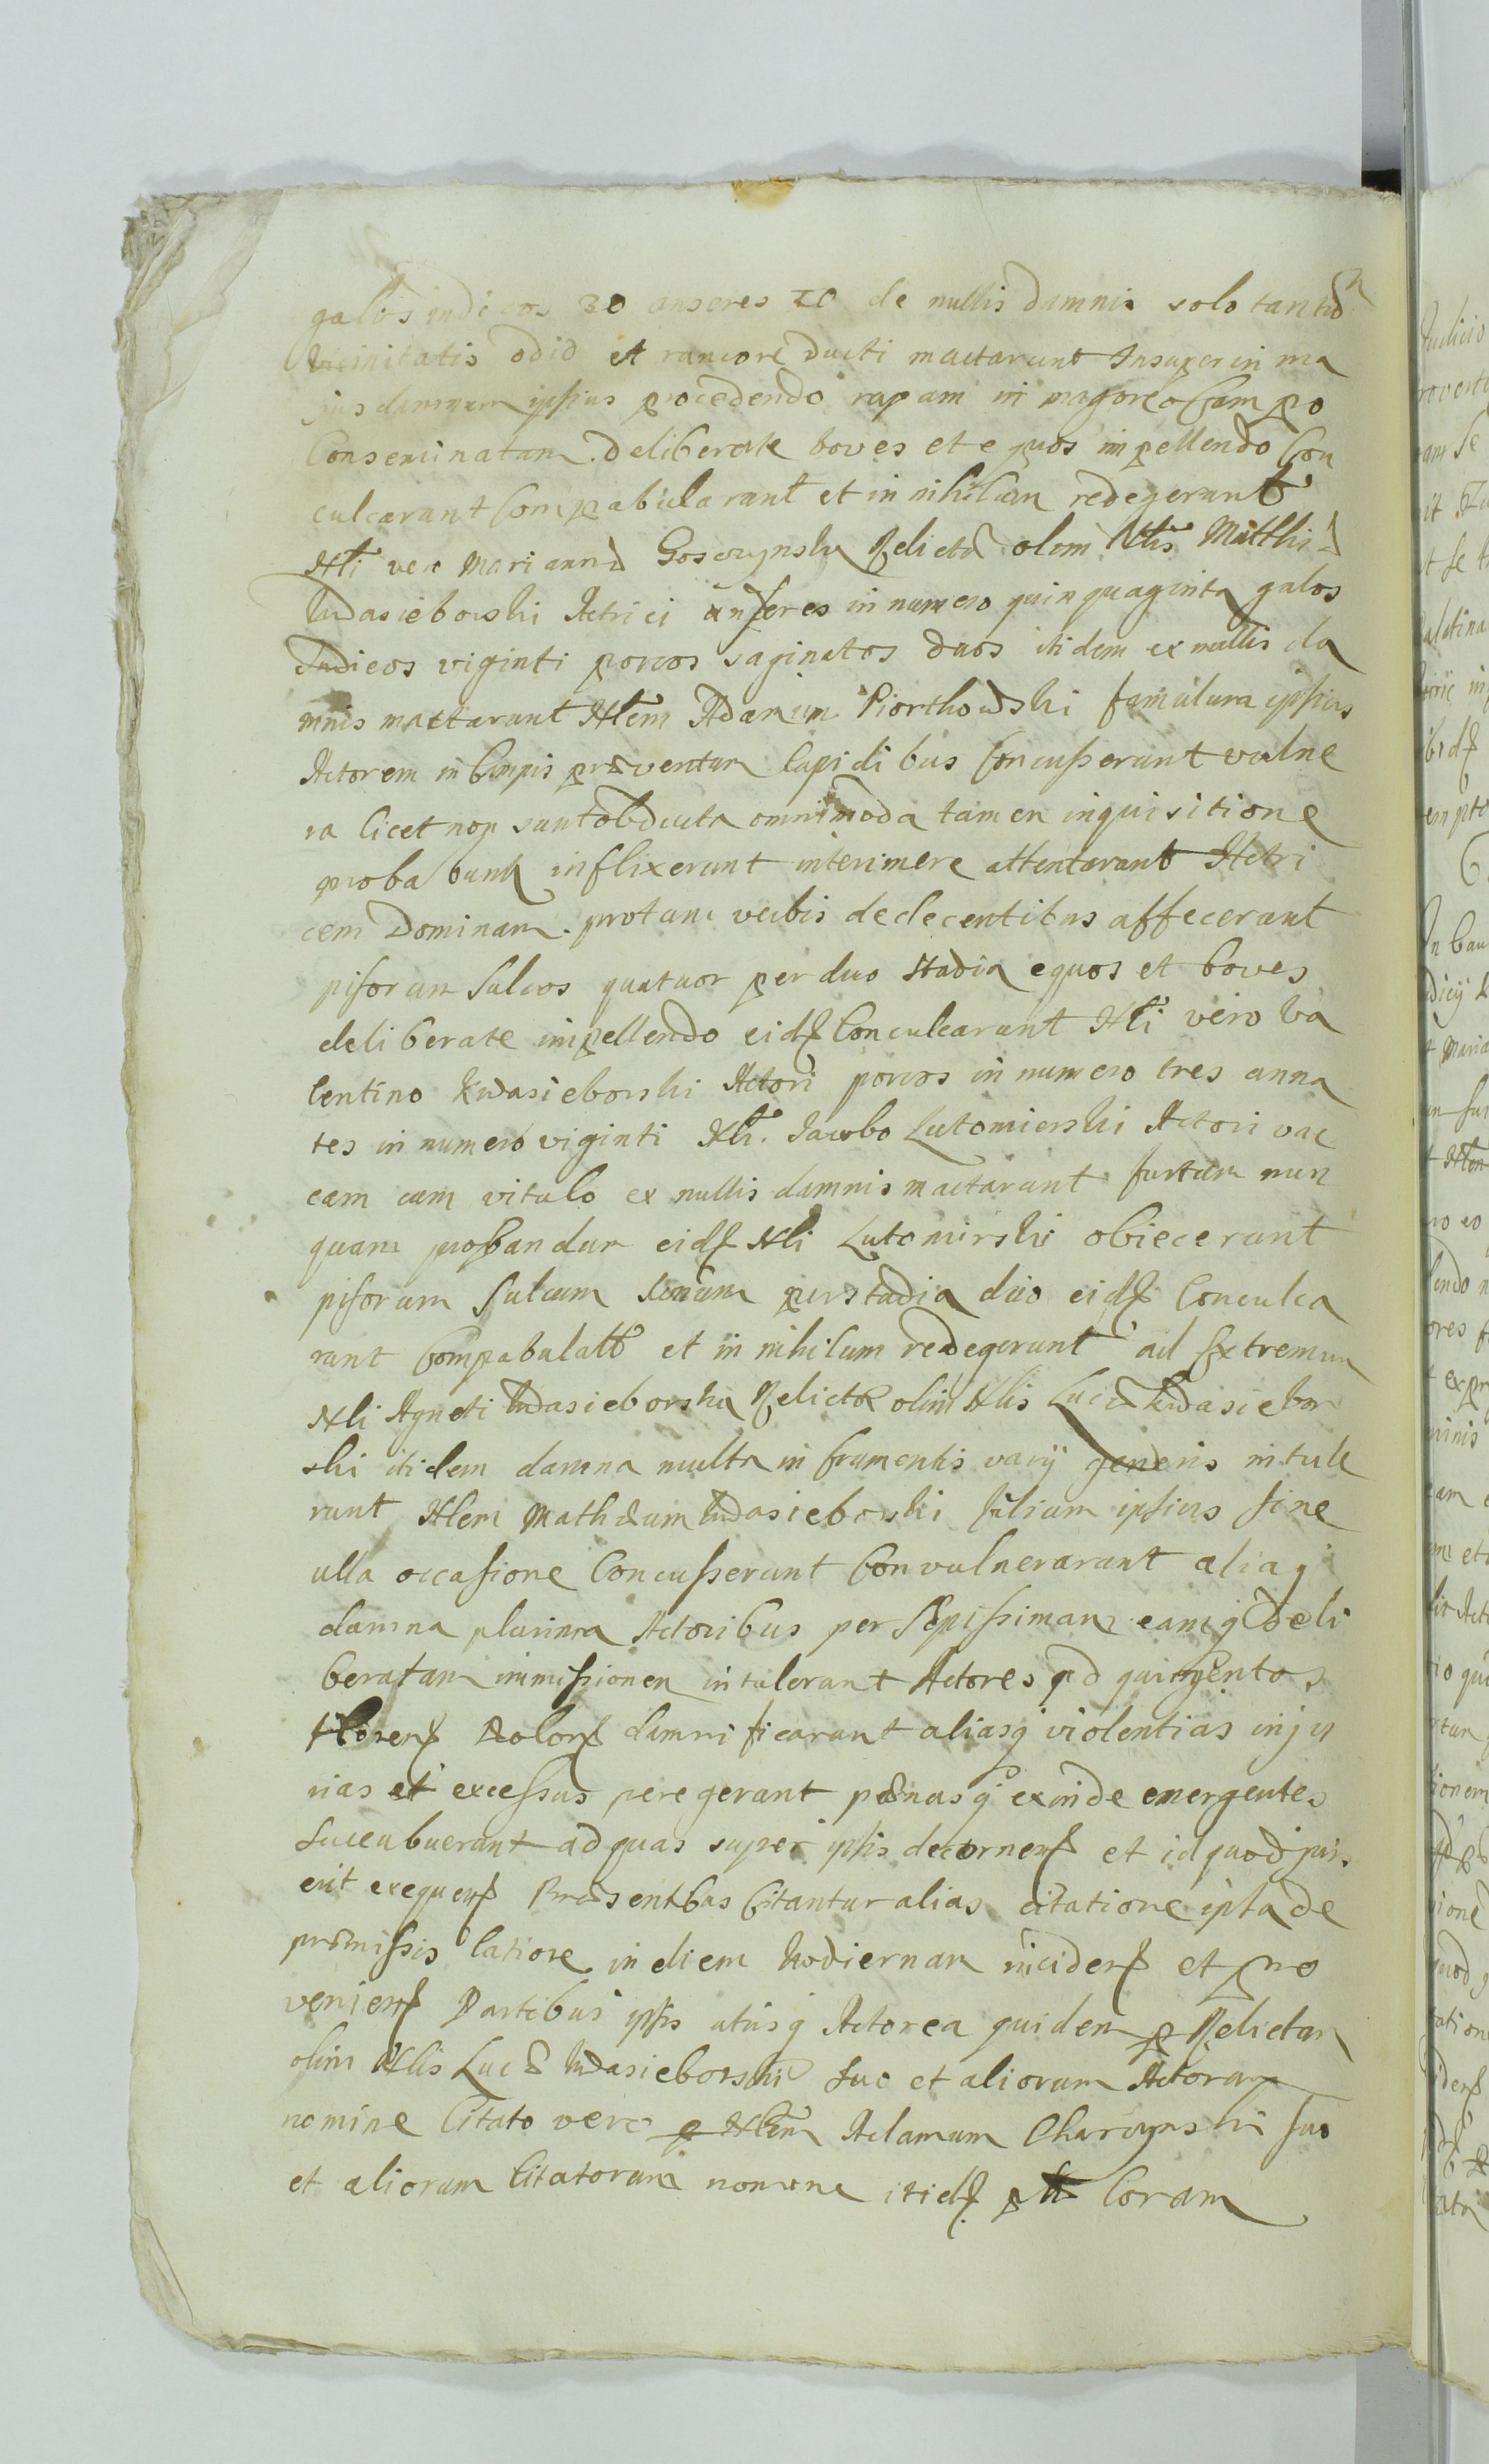 galos indicos 30 anseres 20 de nullis damnis solo tanto
vicinitatis odio et rancore ducti mactarunt Insuper in ma
jus damnum ipsius procedendo rapam in magore campo
Conseminatam deliberate boves et equos impellendo Con
culcarunt Compabularunt et in nihilum redegerunt
Nli vero Mariannæ Gosczynska Relictæ olim Nlis Matthiæ
Kwasieborski Actrici anseres in numero quinquaginta galos
Indicos viginti porcos saginatos duos itidem ex nullis da
mnis mactarunt Nlem Adamum Piorthowski famulum ipsius
Actorem in Campis præventum lapidibus Concusserunt vulne
ra licet non sunt obducta omnimoda tamen inquisitione
probabunt inflixerunt interimere attentarunt Actri
cem Dominam protunc verbis dedecentibus affecerunt
pisorum sulcos quatuor per duo stadia equos et boves
deliberate impellendo eid Conculcarunt Nli vero Va
lentino Kwasieborski Actori porcos in numero tres anna
tes in numero viginti Nli Jacobo Lutomierski Actori vac
cam cum vitulo ex nullis damnis mactarunt furtum nun
quam probandum eid Nli Lutomirski obiecerunt
pisorum sulcum unum per stadia duo eid Conculca
runt Compabulatt et in nihilum redegerunt ad Extremum
Nli Agneti Kwasieborska Relictæ olim Nlis Lucæ Kwasiebor
ski itidem damna multa in frumentis varÿ generis intule
runt Nlem Mathæum Kwasieborski filium ipsius sine
ulla occasione Concusserunt Convulnerarunt aliaq
damna plurima Actoribus per sæpissimam eamq deli
beratam immissionem intulerunt Actores ad quingentos
florens Polon damnificarunt aliasq violentias inju
rias et excessus peregerunt pænasq exinde emergentes
succubuerunt ad quas super ipsis decernen et id quod juris
erit exequen Præsentibus Citantur alias citatione ipsa de
præmissis latiore in diem hodiernam inciden et pro
venien Partibus ipsis utrisq Actorea quidem p Relictam
olim Nlis Lucæ Kwasieborski suo et aliorum Actorum
nomine Citato vero p Nlem Adamum Charczynski suo
et aliorum Citatorum nomine itid Coram